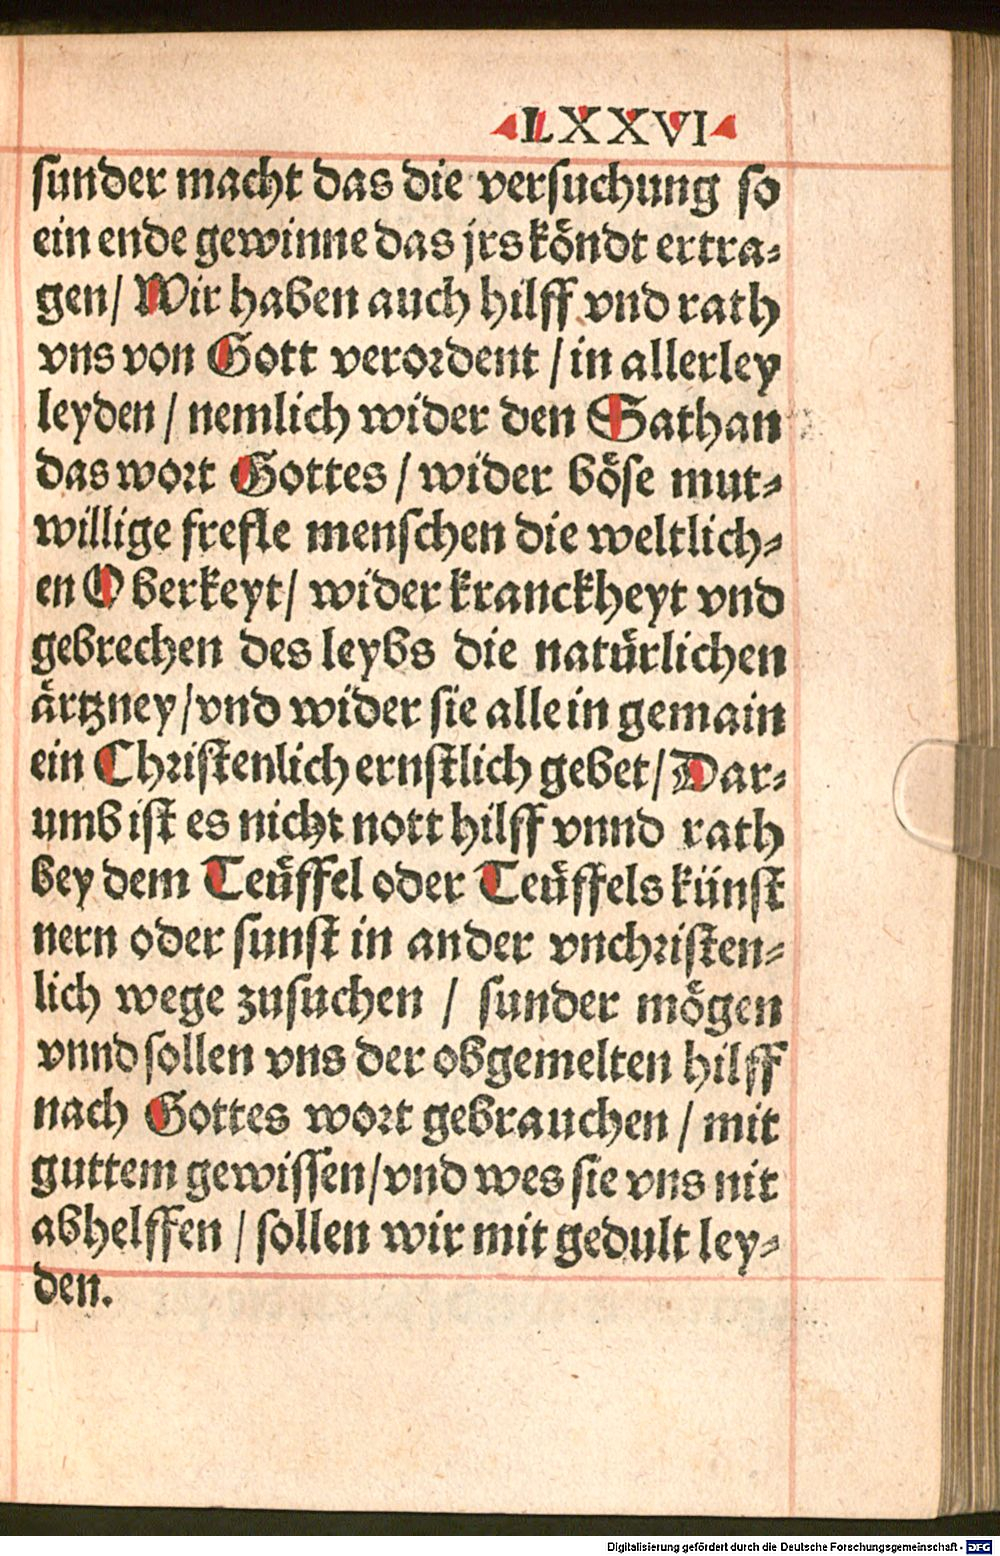 LXXVI
sunder macht das die versuchung so
ein ende gewinne das jrs köndt ertra-
gen/ Wir haben auch hilff vnd rath
vns von Gott verordent / in allerley
leyden / nemlich wider den Sathan
das wort Gottes / wider böse mut-
willige frefle menschen die weltlich-
en Oberkeyt/ wider kranckheyt vnd
gebrechen des leybs die natürlichen
ärtzney/vnd wider sie alle in gemain
ein Christenlich ernstlich gebet/ Dar-
umb ist es nicht nott hilff vnnd rath
bey dem Teüffel oder Teüffels künst
nern oder sunst in ander vnchristen-
lich wege zusuchen / sunder mögen
vnnd sollen vns der obgemelten hilff
nach Gottes wort gebrauchen / mit
guttem gewissen/vnd wes sie vns nit
abhelffen / sollen wir mit gedult ley-
den.
Digitalisierung gefördert durch die Deutsche Forschungsgemeinschaft - DFG